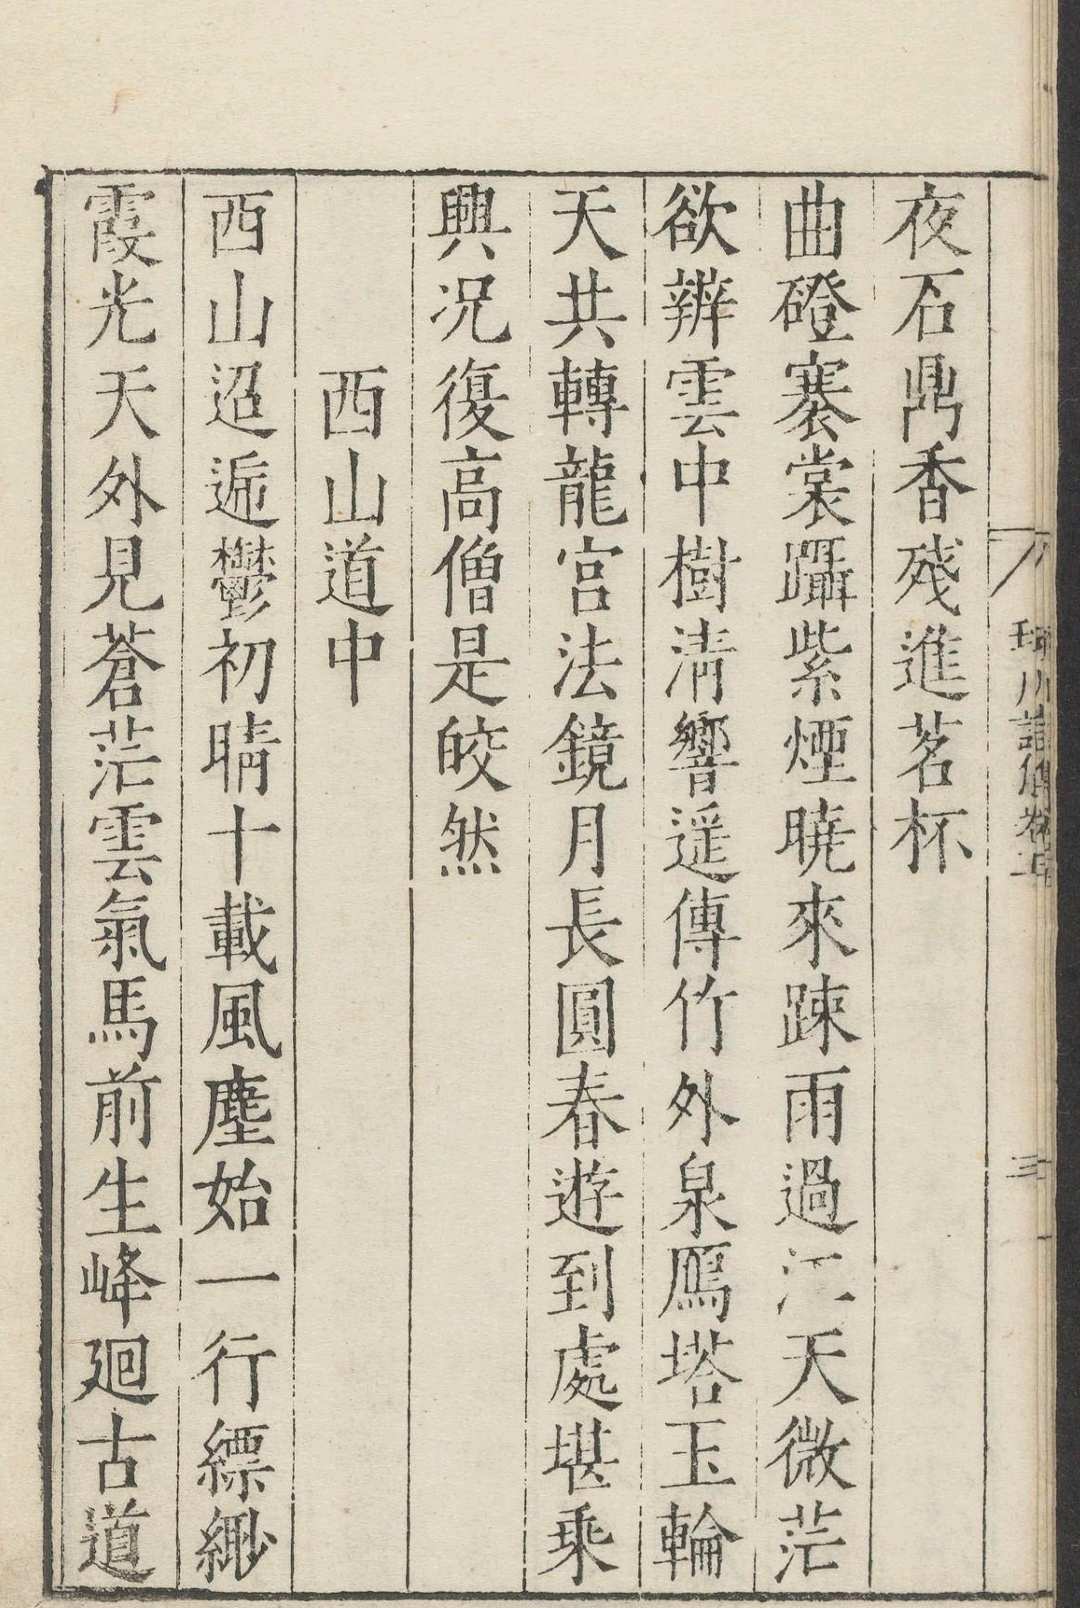 夜石鼎香殘進茗杯
曲磴褰裳躡紫煙曉來踈雨過江天微茫
欲辨雲中樹淸響遥傳竹外泉鴈塔玉輪
天共轉龍宮法鏡月長圓春遊到處堪乘
興况復高僧是皎然
西山道中
西山迢遞鬱初晴十載風塵始一行縹緲
霞光天外見蒼茫雲氣馬前生峰廻古道